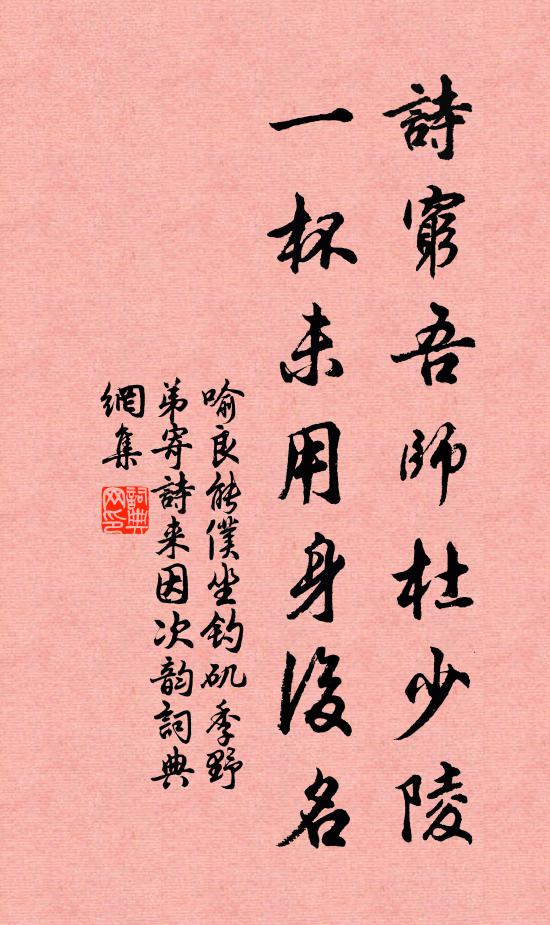 詩窮吾師杜少陵
一杯未用身後名
喻良能僕坐釣矶季野
弟寄詩来因次韵詞典
網集
詞典网印